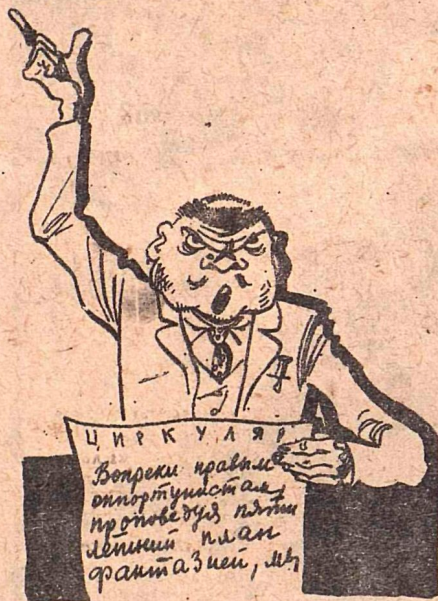 ЦИРКУЛЯР
Вопреки правым
оппортунистам,
проповедуя пяти
летний план
фантазией, мы